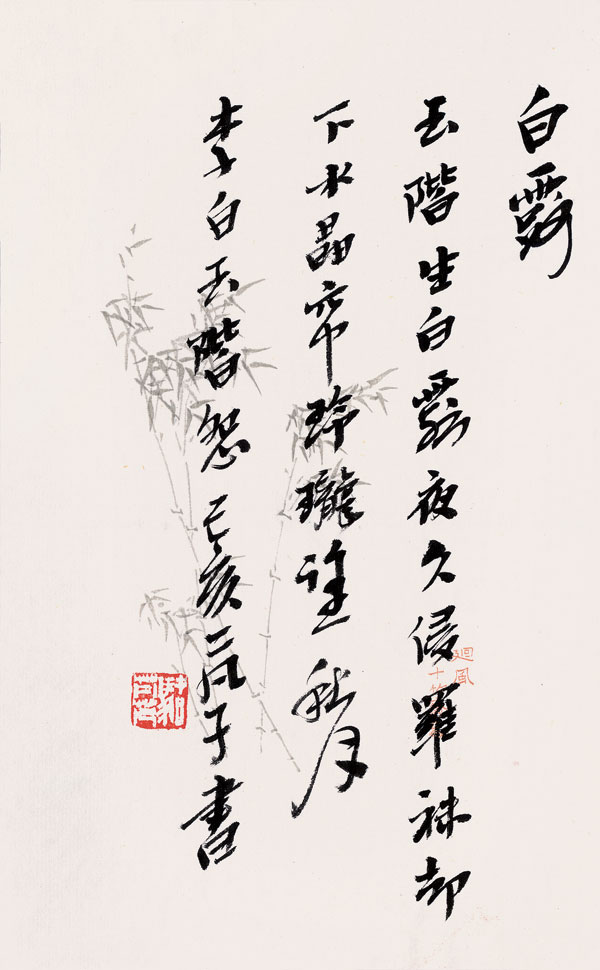 白露
玉階生白露夜久侵羅袜却
下水晶帘玲瓏望秋月
李白玉階怨己亥子書
迴風